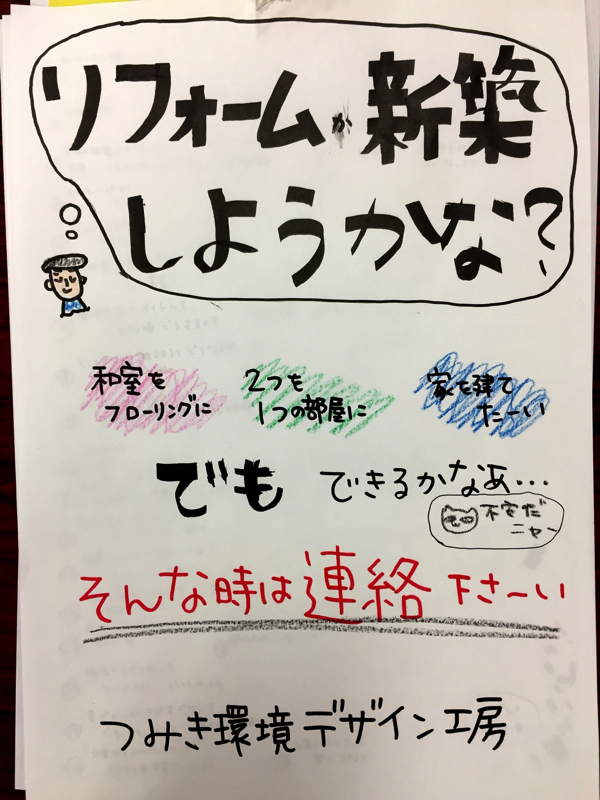 リフォームか新築
しようかな?
和室を
フローリングに
2つを
1つの部屋に
家を建て
たーい
でも できるかなあ…
不安だ
ニャー
そんな時は連絡下さーい
つみき環境デザイン工房